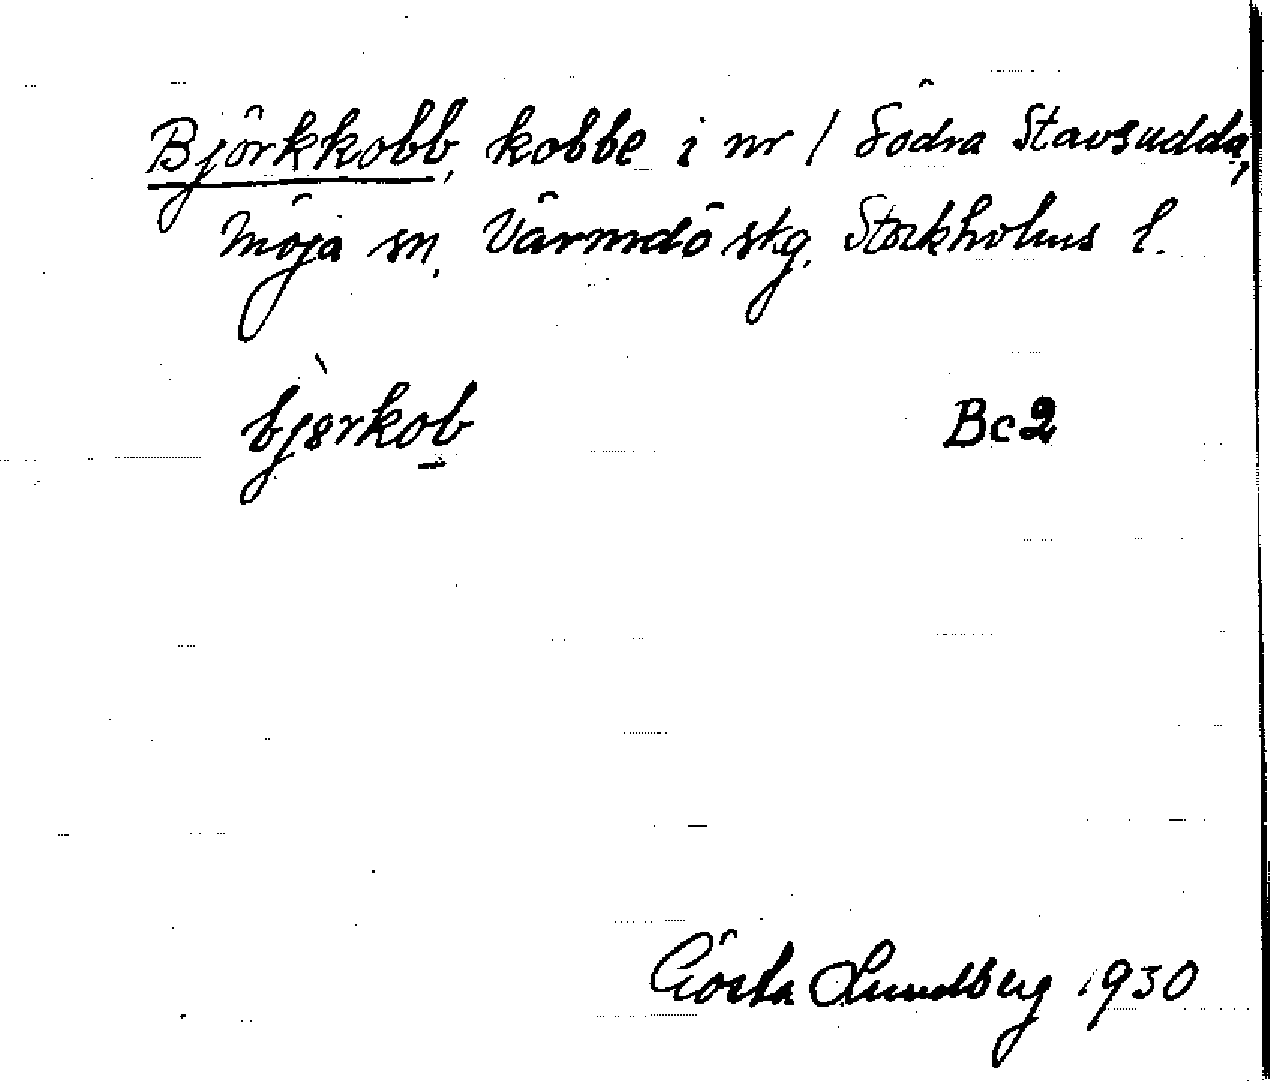 Björkkobb, kobbe i nr 1 Södra Stavsudda,
Möja sn, Värmdö skg, Stockholms l.
bjɵ̀rkob Bc2
Gösta Lundberg 1930